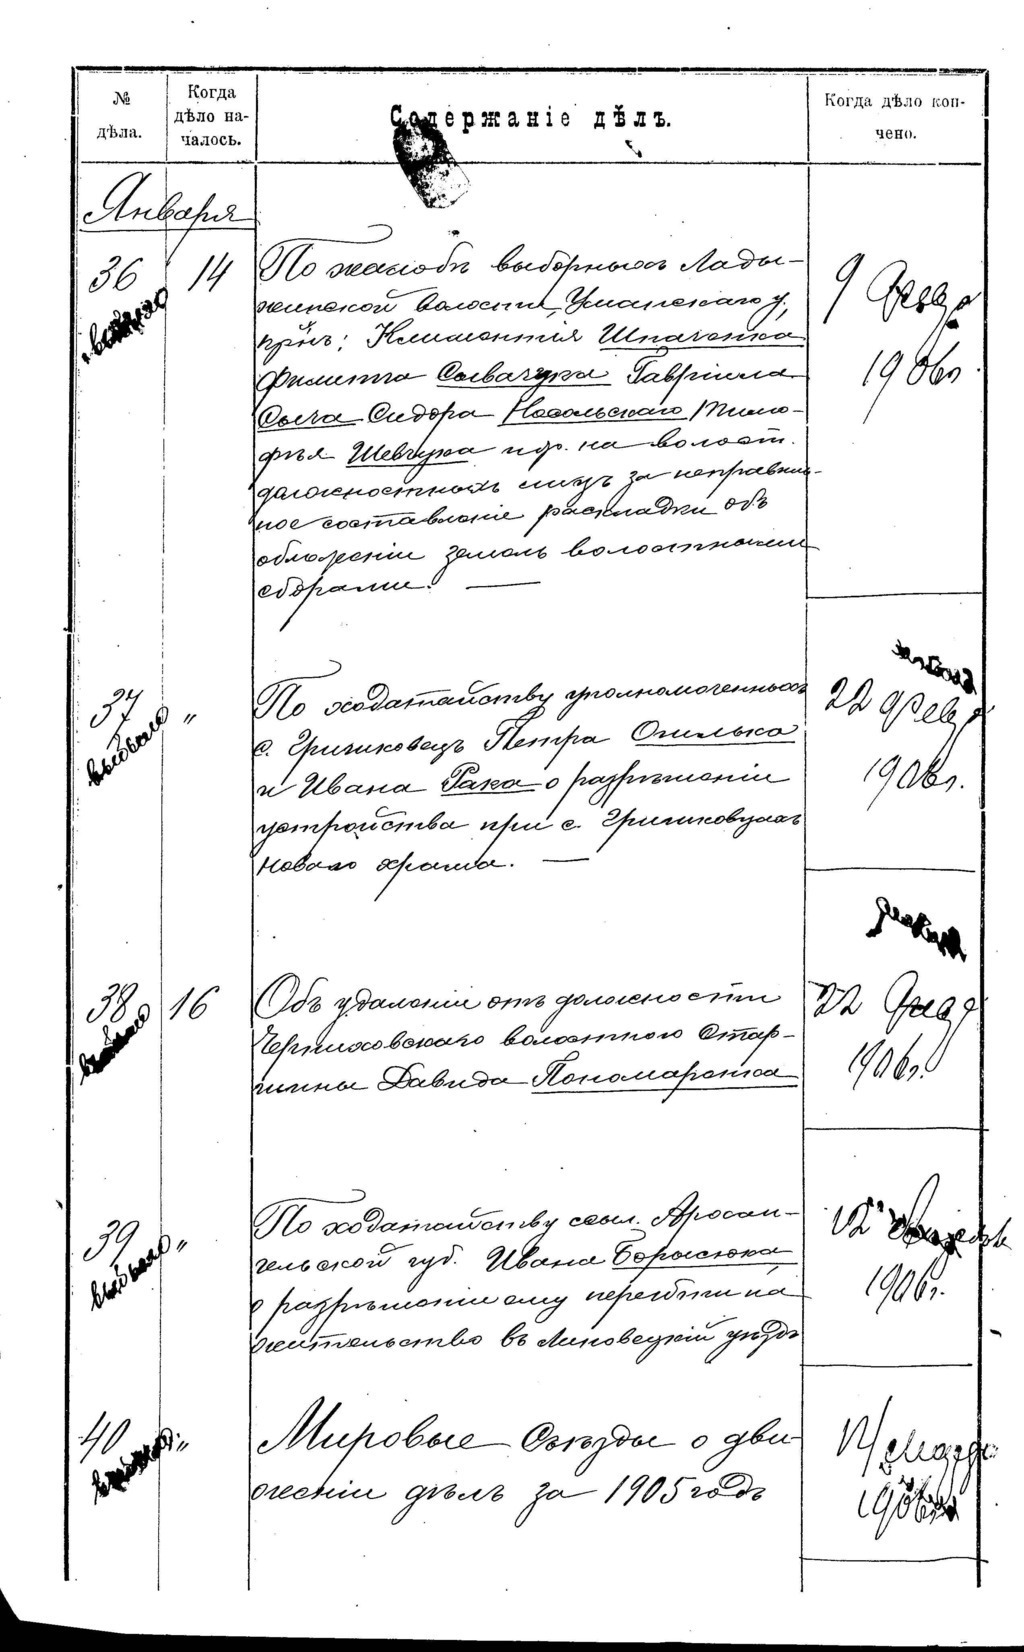 № дѣла.
Когда дѣло началось.
Содержаніе дѣлъ.
Когда дѣло кончено.
Января
36
14
выбыло
По жалобѣ выборныхъ Лады-
жинской волости, Уманскаго у,
кр-нъ: Климентія Шпаченка
Филиппа Саввачука Гавріила
Сыча Сидора Носальскаго Тимо-
фѣя Шевчука и др. на волост.
должностныхъ лицъ за неправиль-
ное составленіе раскладки объ
обложеніи земель волостными
сборами.
9 Февр
1906г.
37
"
выбыло
По ходатайству уполномоченныхъ
с. Гричиковецъ Петра Огилька
и Ивана Рака о разрѣшеніи
устройства при с. Гричиковцахъ
новаго храма.
22 Февр
1906г.
38
16
выбыло
Объ удаленіи отъ должности
Черниховскаго волостного Стар-
шины Давида Пономаренка
22 Февр
1906г.
39
"
выбыло
По ходатайству ссыл. Архан-
гельской губ. Ивана Борисюка
о разрѣшеніи ему перейти на
жительство въ Липовецкій уѣздъ
12
1906г.
40
"
Мировые Съѣзды о дви-
женіи дѣлъ за 1905 годъ
14 Марта
1906г